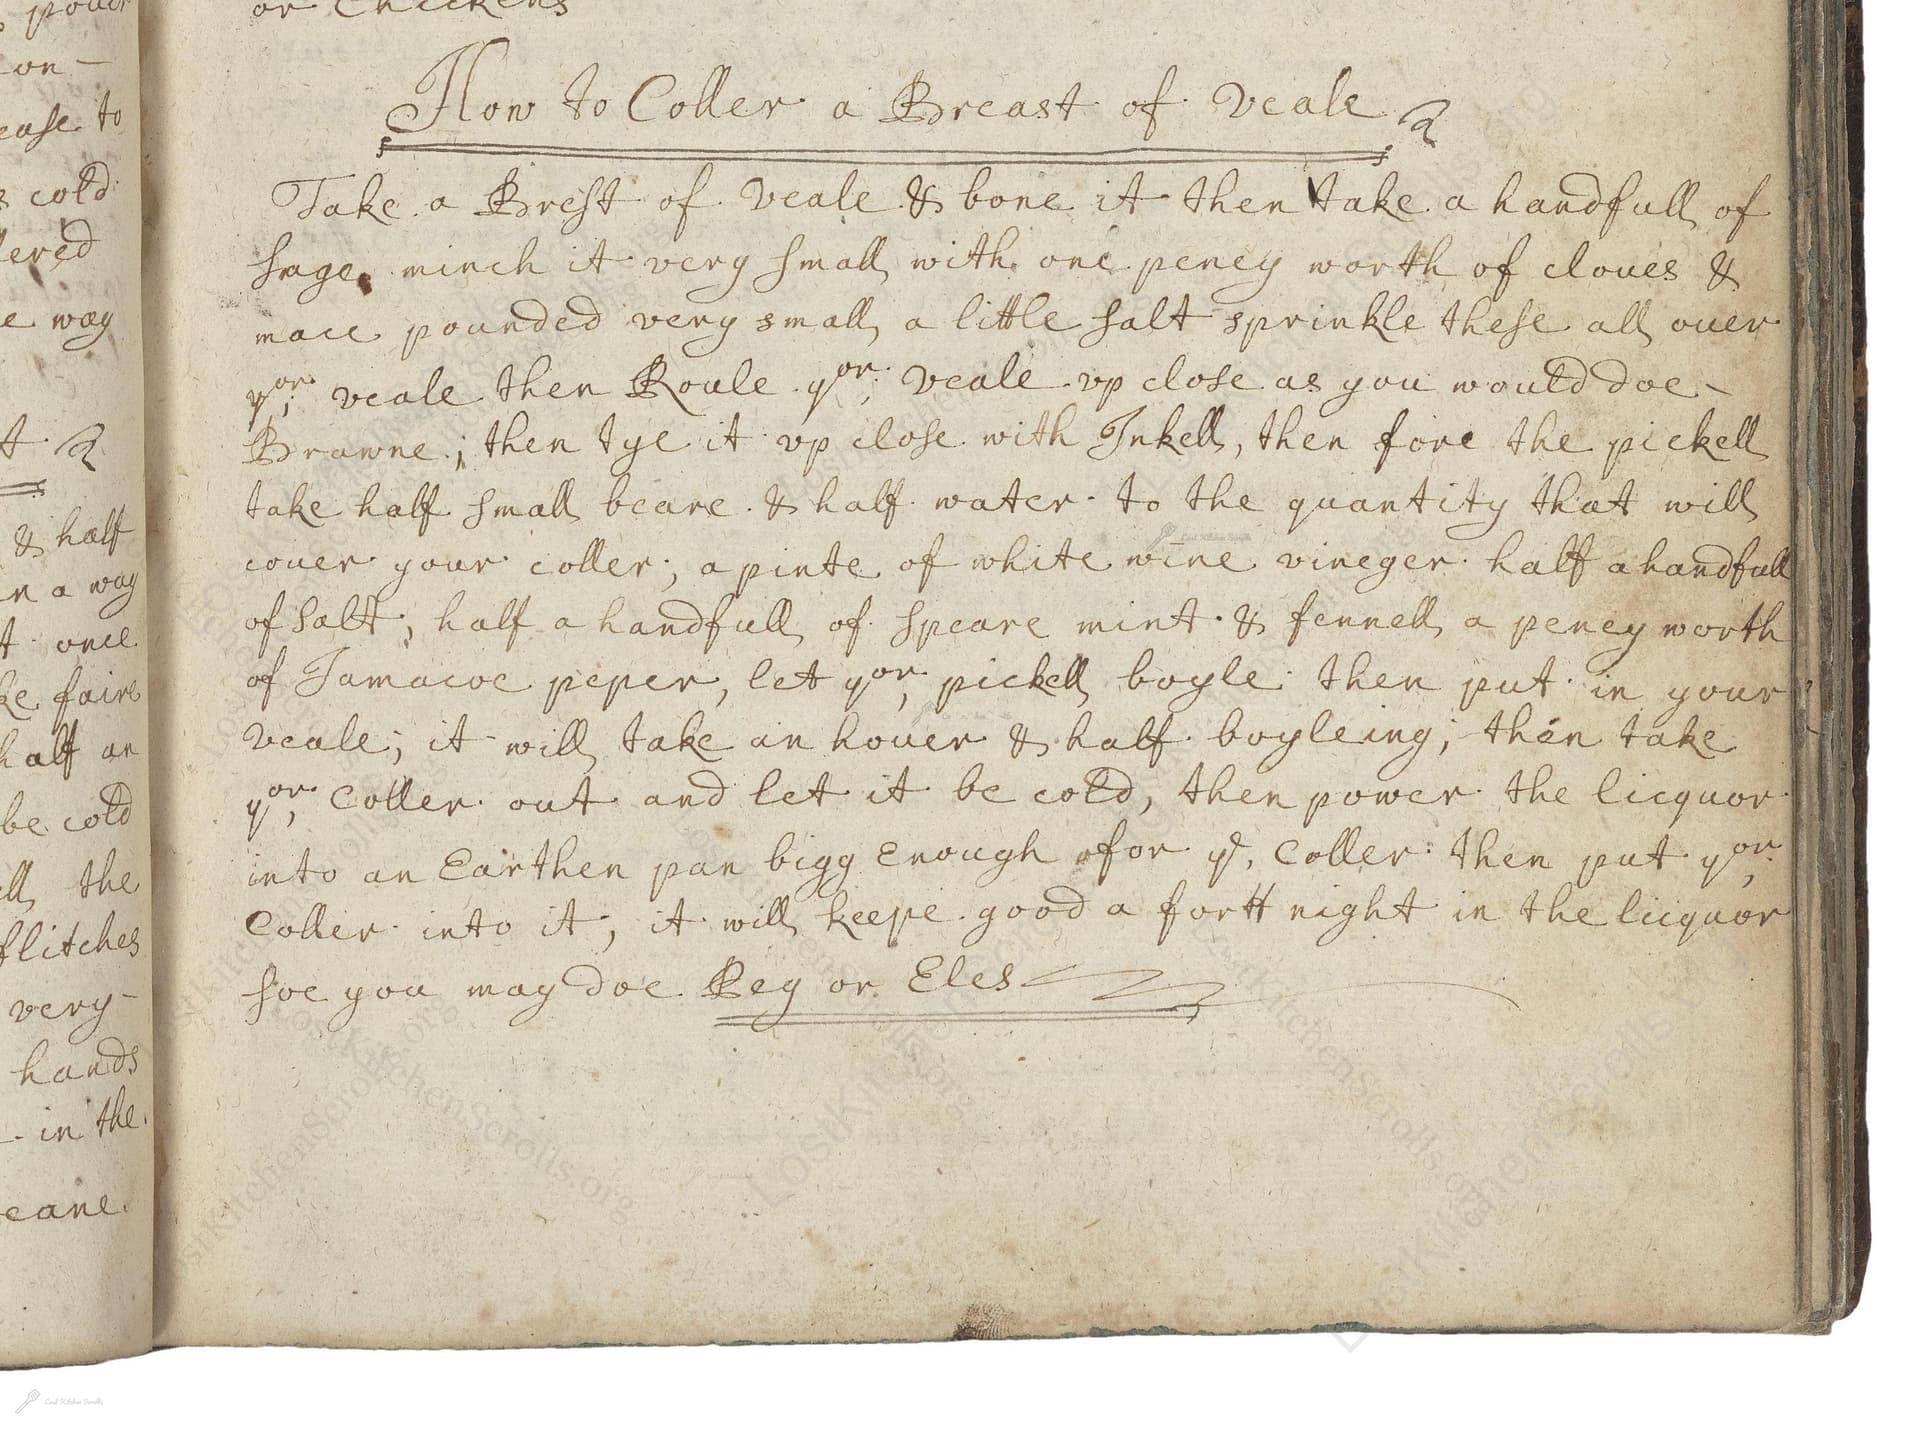 or Chickens
How to Coller a Breast of Veale
Take a Brest of Veale & bone it then take a handfull of
sage minch it very small with one peney worth of cloues &
mace pounded very small a little salt sprinkle these all ouer
yor; veale then Roule yor; Veale vp close as you would doe -
Brawne; then tye it vp close with Inkell, then fore the pickell
take half small beare & half water to the quantity that will
couer your coller; a pinte of white wine vineger half a handfull
of salt; half a handfull of speare mint & fennell a peney worth
of Jamacoe peper, lett yor, pickell boyle then put in your
veale; it will take an houer & half boyleing; then take
yor, Coller out and let it be cold, then power the licquor
into an Earthen pan bigg Enough for ye, Coller then put yor,
Coller into it; it will keepe good a fortt night in the licquor
soe you may doe Beg or Eles
on -
ease to
cold
way
& half
in a way
once
faire
half an
be cold
the
flitches
very -
hands
in the
LostKitchenScrolls.org
Lost Kitchen Scrolls